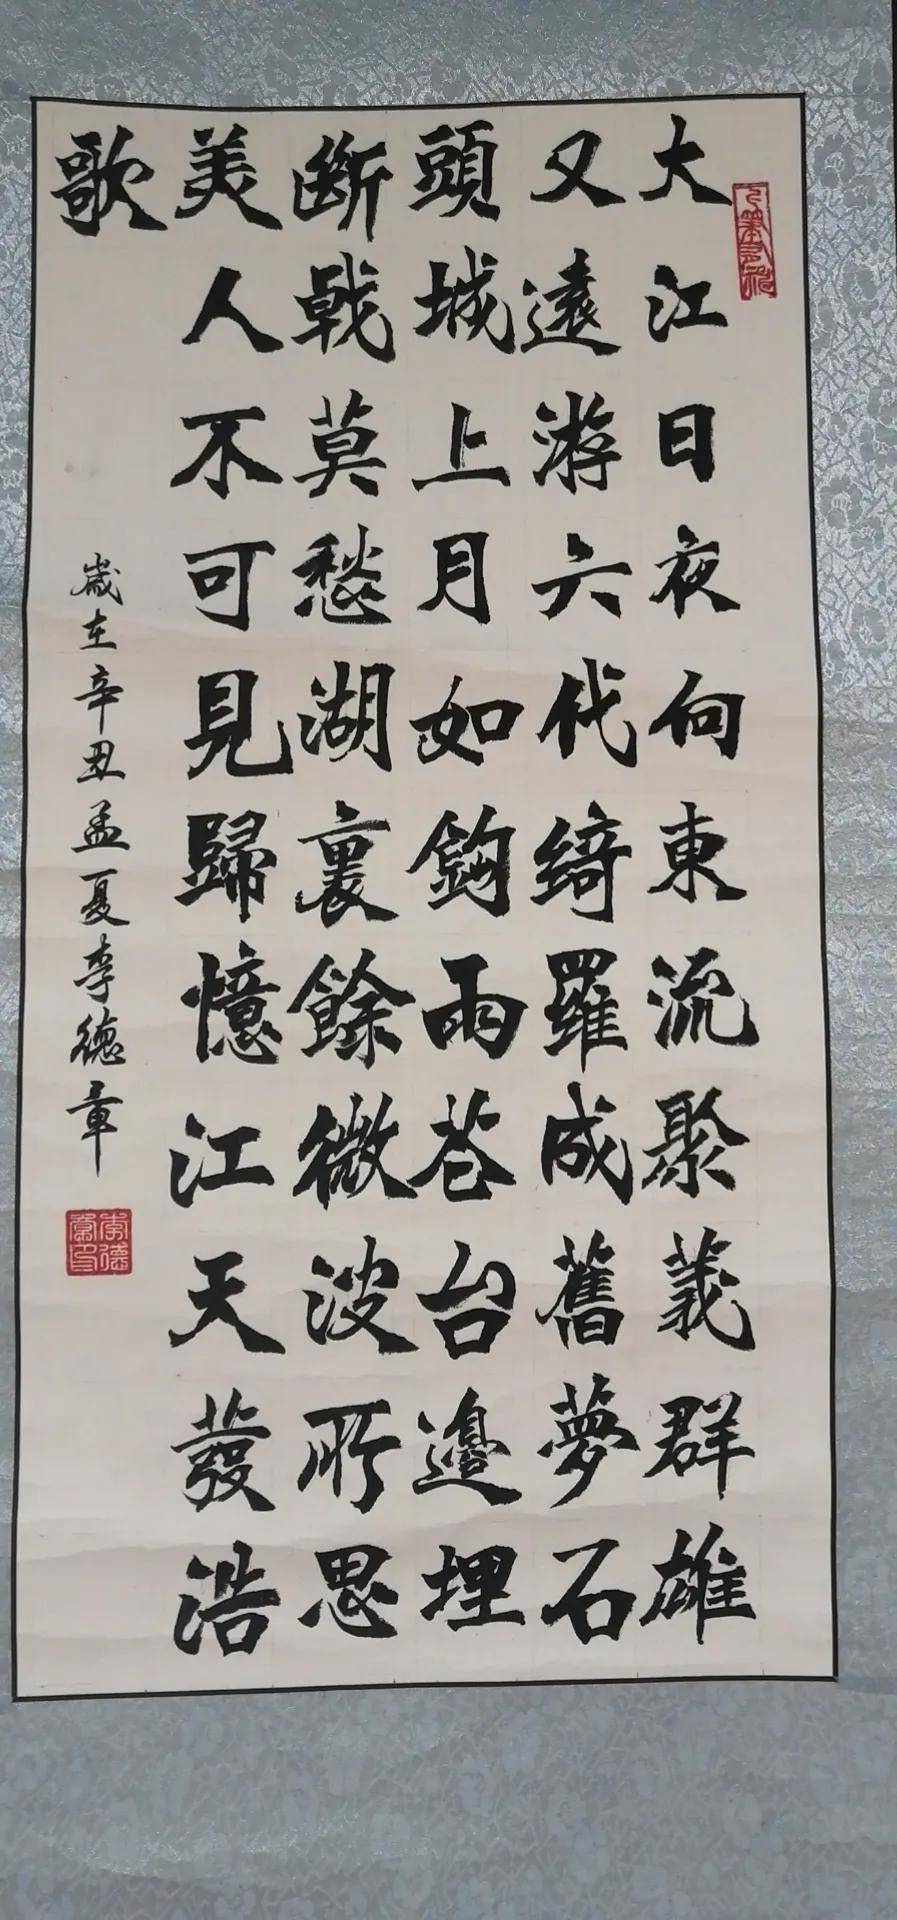 大江日夜向東流聚義群雄
又遠游六代綺羅成舊夢石
頭城上月如鈎雨苍台邊埋
斷戟莫愁湖裏餘微波所思
美人不可見歸憶江天發浩
歌
歲在辛丑孟夏李德章
李德章印